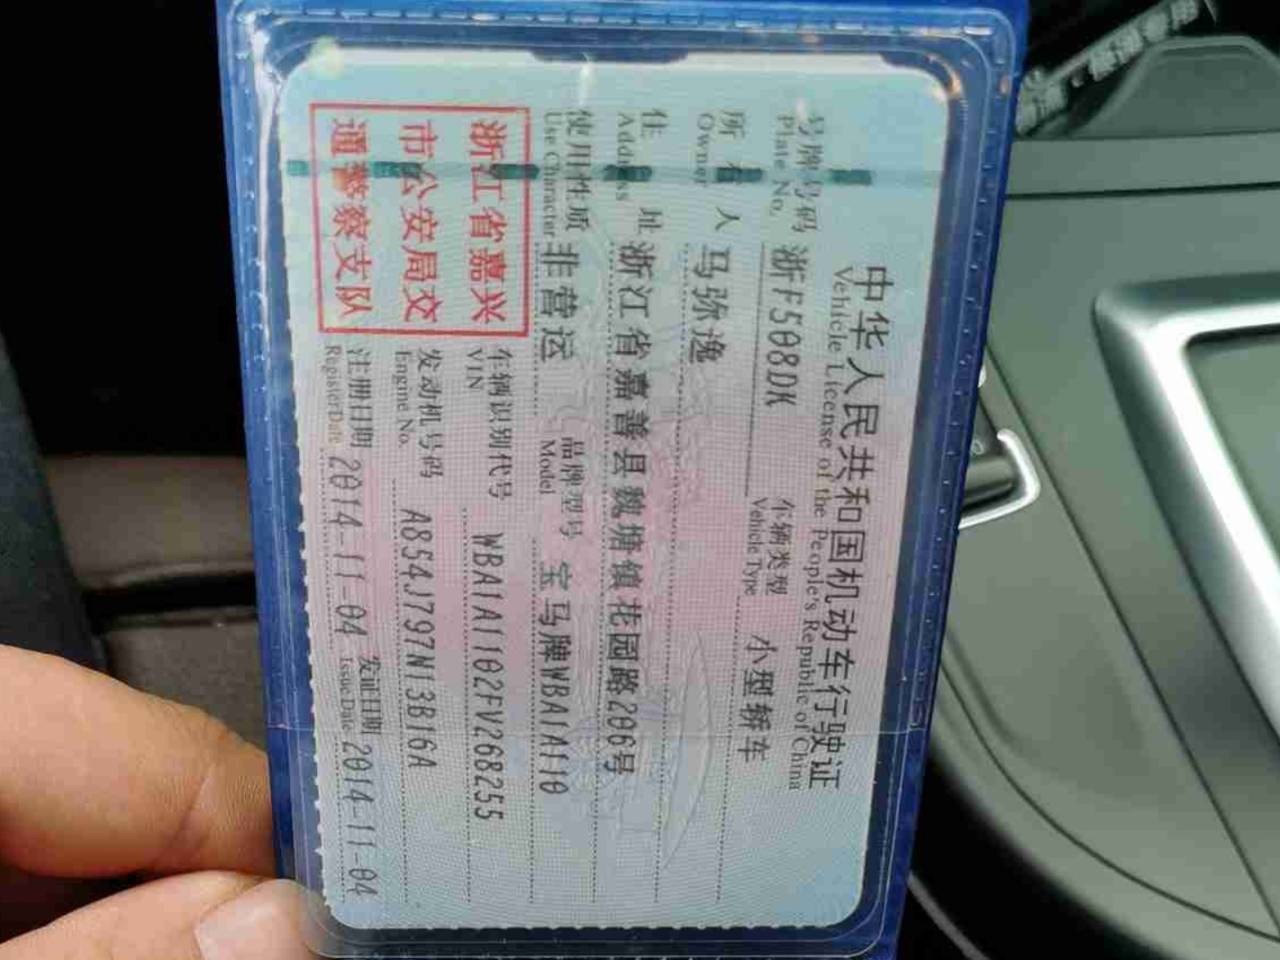 中华人民共和国机动车行驶证
Vehicle License of the People's Republic of China
号牌号码 浙F508DK 车辆类型 小型轿车
Plate No. Vehicle Type
所有人 马弥逸
Owner
住址 浙江省嘉善县魏塘镇花园路206号
Address
使用性质 非营运 品牌型号 宝马牌WBA1A110
Use Character Model
浙江省嘉兴
市公安局交
通警察支队
车辆识别代号 WBA1A1102FV268255
VIN
发动机号码 A854J797N13B16A
Engine No.
注册日期 2014-11-04 发证日期 2014-11-04
Register Date Issue Date